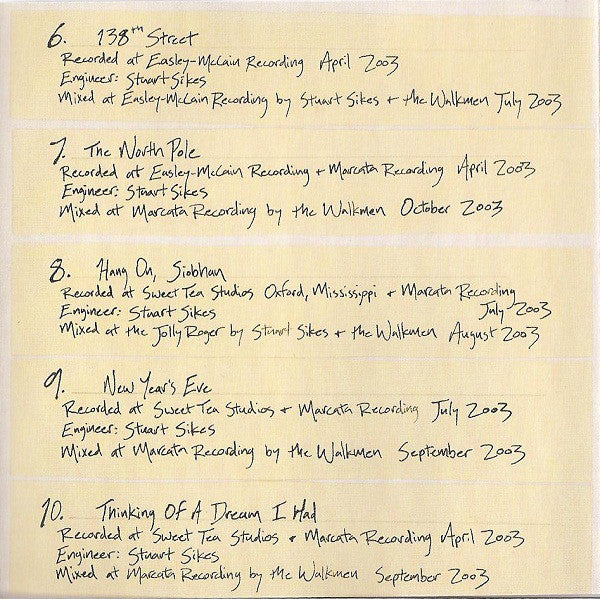 6. 138th Street
Recorded at Easley-McCain Recording April 2003
Engineer: Stuart Sikes
Mixed at Easley-McCain Recording by Stuart Sikes + the Walkmen July 2003
7. The North Pole
Recorded at Easley-McCain Recording + Marcata Recording April 2003
Engineer: Stuart Sikes
Mixed at Marcata Recording by the Walkmen October 2003
8. Hang On, Siobhan
Recorded at Sweet Tea Studios Oxford, Mississippi + Marcata Recording
July 2003
Engineer: Stuart Sikes
Mixed at the Jolly Roger by Stuart Sikes + the Walkmen August 2003
9. New Year's Eve
Recorded at Sweet Tea Studios + Marcata Recording July 2003
Engineer: Stuart Sikes
Mixed at Marcata Recording by the Walkmen September 2003
10. Thinking Of A Dream I Had
Recorded at Sweet Tea Studios + Marcata Recording April 2003
Engineer: Stuart Sikes
Mixed at Marcata Recording by the Walkmen September 2003